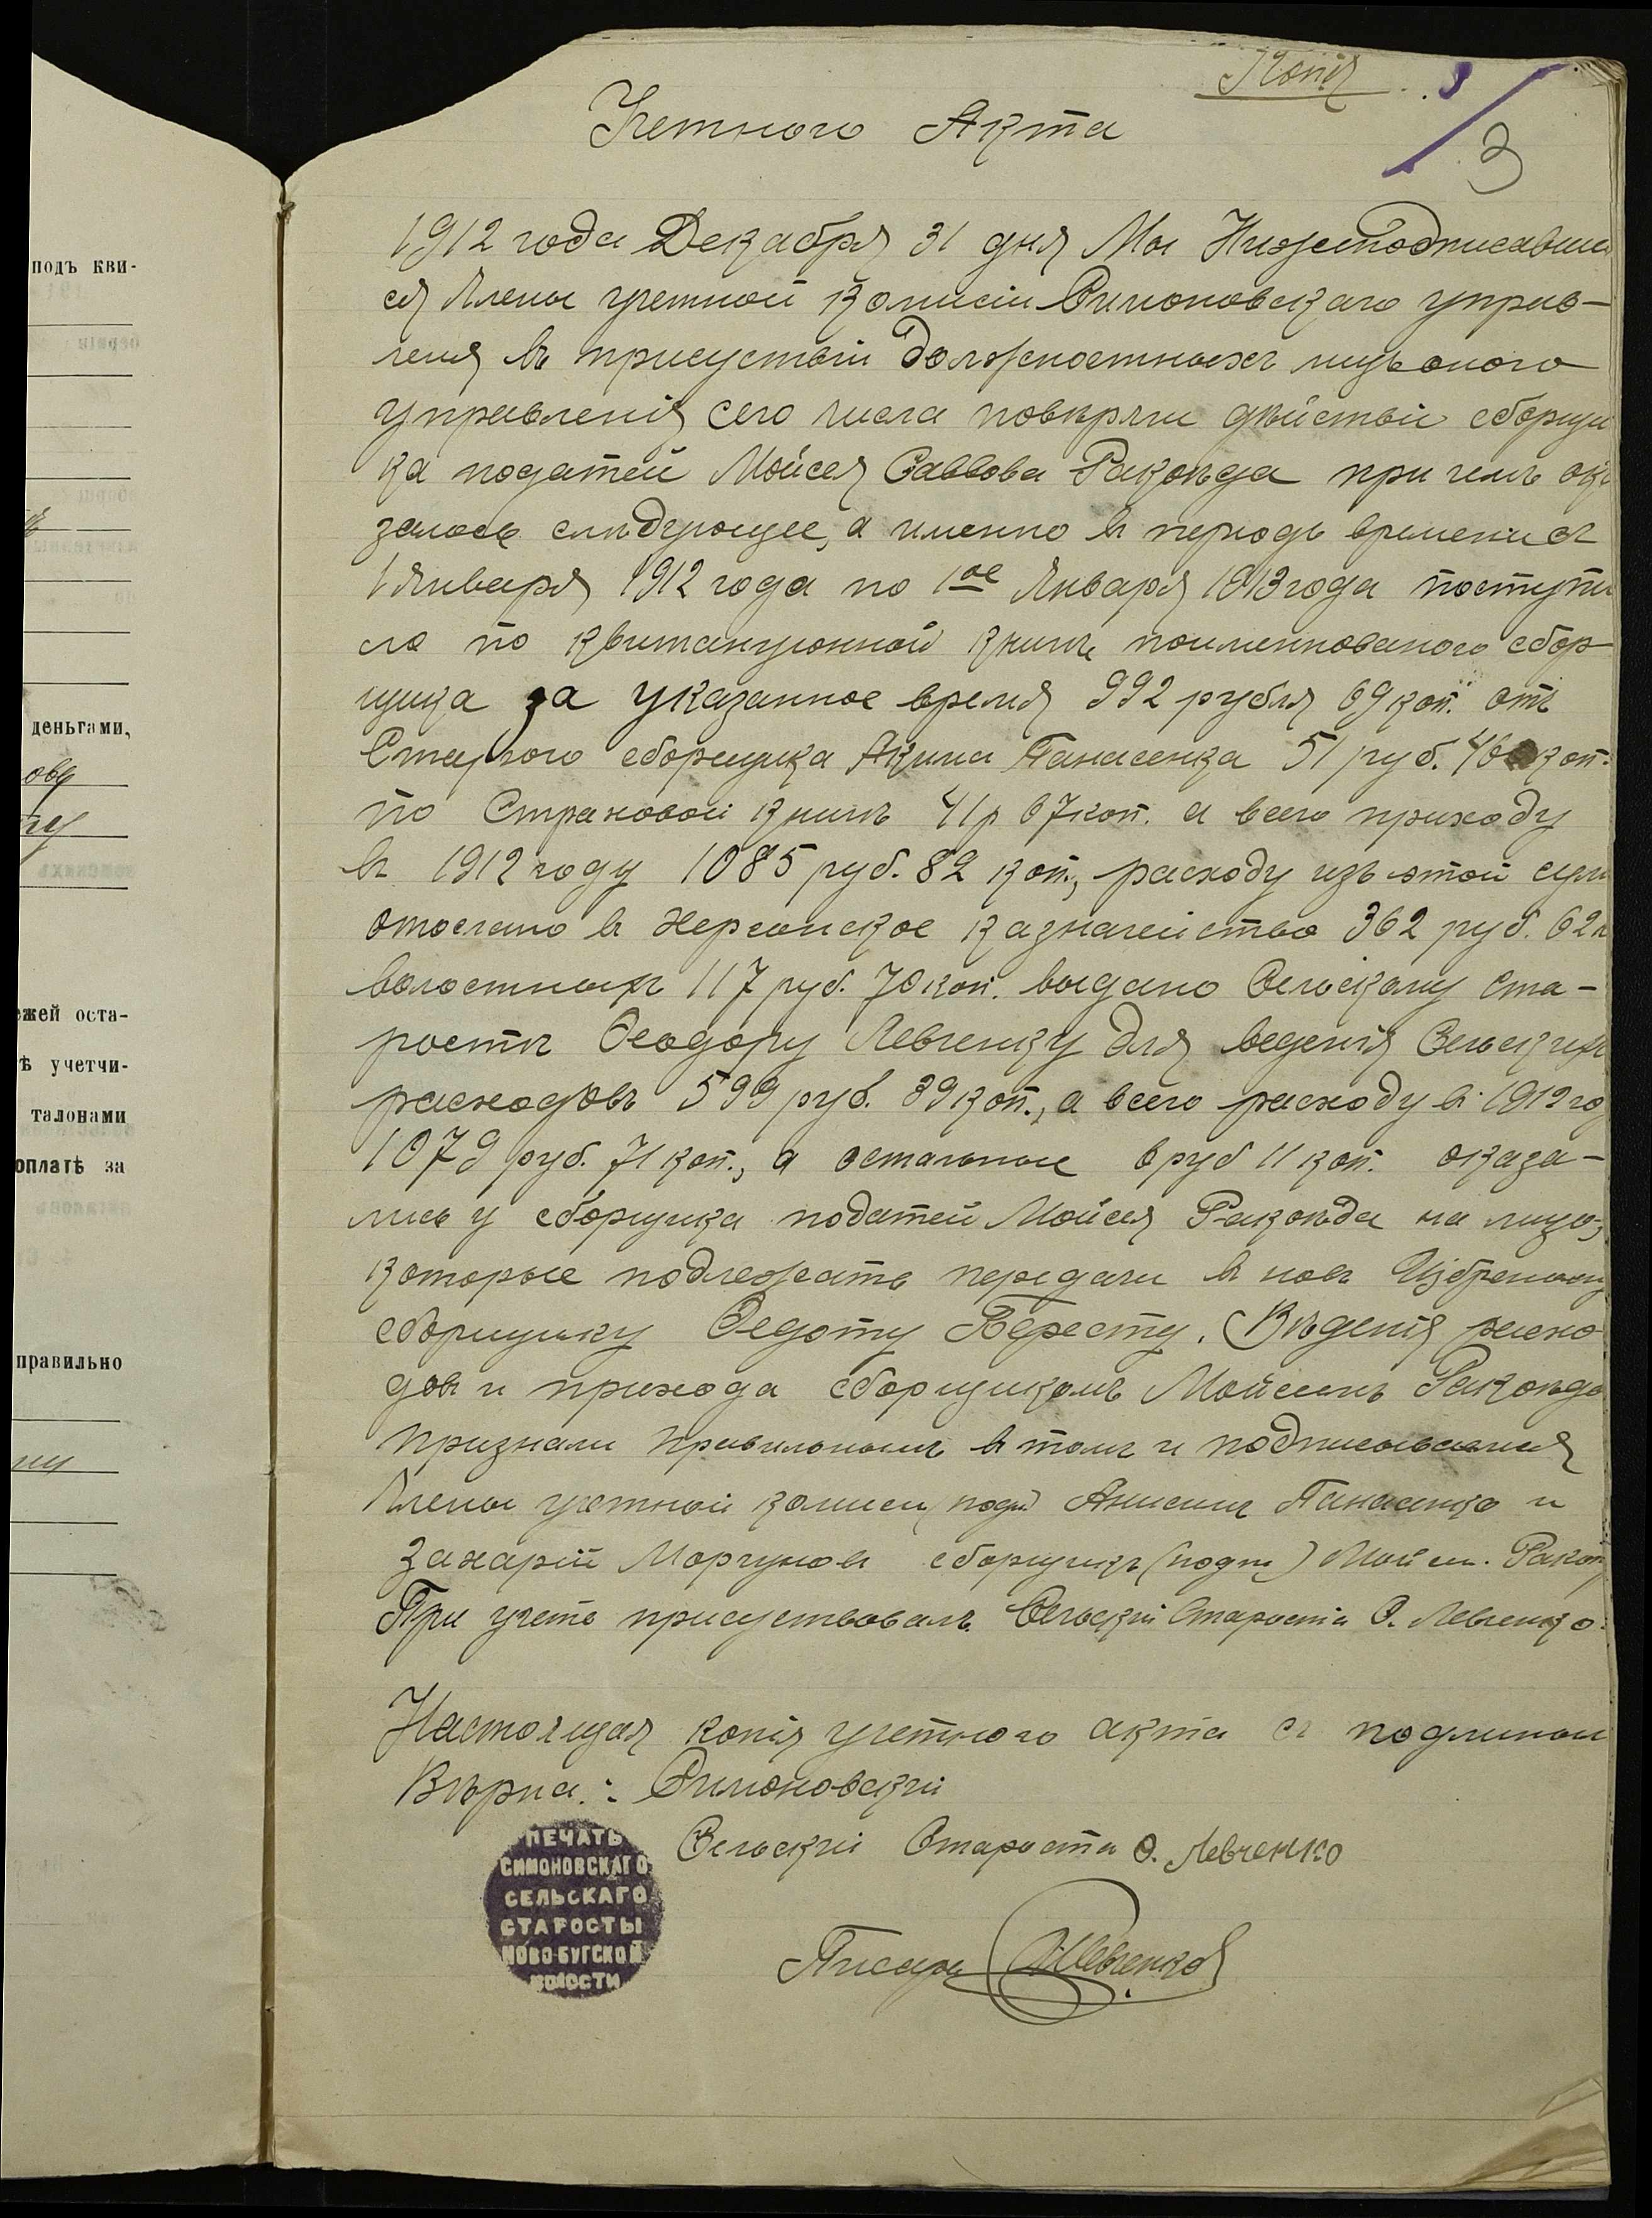 Копія
3
Учетного Акта
1912 года Декабря 31 дня Мы Нижеподписавши
ся Члены учетной комисіи Симоновскаго управ-
ленія въ присуствіи должностныхъ лицъ оного
управленія сего числа повѣряли дѣйствіи сборщи
ка податей Мойсея Саввова Раколда при чемъ ока
залось слѣдующее, а именно въ періодъ времени съ
1 Января 1912 года по 1ое Января 1913 года поступи
ло по квитанціонной книгѣ поименнованого сбор-
щика за указанное время 992 рубля 69 коп. отъ
Старого сборщика Акима Панасенка 51 руб. 46 коп.
по Страховой книгѣ 41 р 67 коп. а всего приходу
въ 1912 году 1085 руб. 82 коп., расходу изъ этой сум
отослано въ Херсонское казначейство 362 руб. 62 к
волостныхъ 117 руб. 70 коп. выдано Сельскому Ста-
ростѣ Феодору Левченку для веденія Сельскихъ
расходовъ 599 руб. 39 коп., а всего расходу въ 1912 го
1079 руб. 71 коп., а остальные 6 руб 11 коп. оказа-
лись у сборщика податей Мойсея Раколда на лицо,
которые подлежатъ передачи въ новъ Избраному
сборщику Федоту Бересту. Вѣденія расхо
довъ и прихода сборщикомъ Мойсеемъ Раколда
признали правильнымъ въ томъ и подписываемся
Члены учетной комисіи (подп) Анисим Панасенко и
Захарій Моргуновъ сборщикъ (подпи) Мойсей. Ракол
При учетѣ присуствовалъ Сельскій Староста Ф. Левченко.
Настоящая копія учетного акта съ подлиным
Вѣрна: Симоновскій
Сельскій Староста Ф. Левченко
Писарь Шевченко
ПЕЧАТЬ
СИМОНОВСКАГО
СЕЛЬСКАГО
СТАРОСТЫ
НОВО-БУГСКОЙ
ВОЛОСТИ
подъ кви-
деньгами,
ежей оста-
ѣ учетчи-
талонами
оплатѣ за
правильно